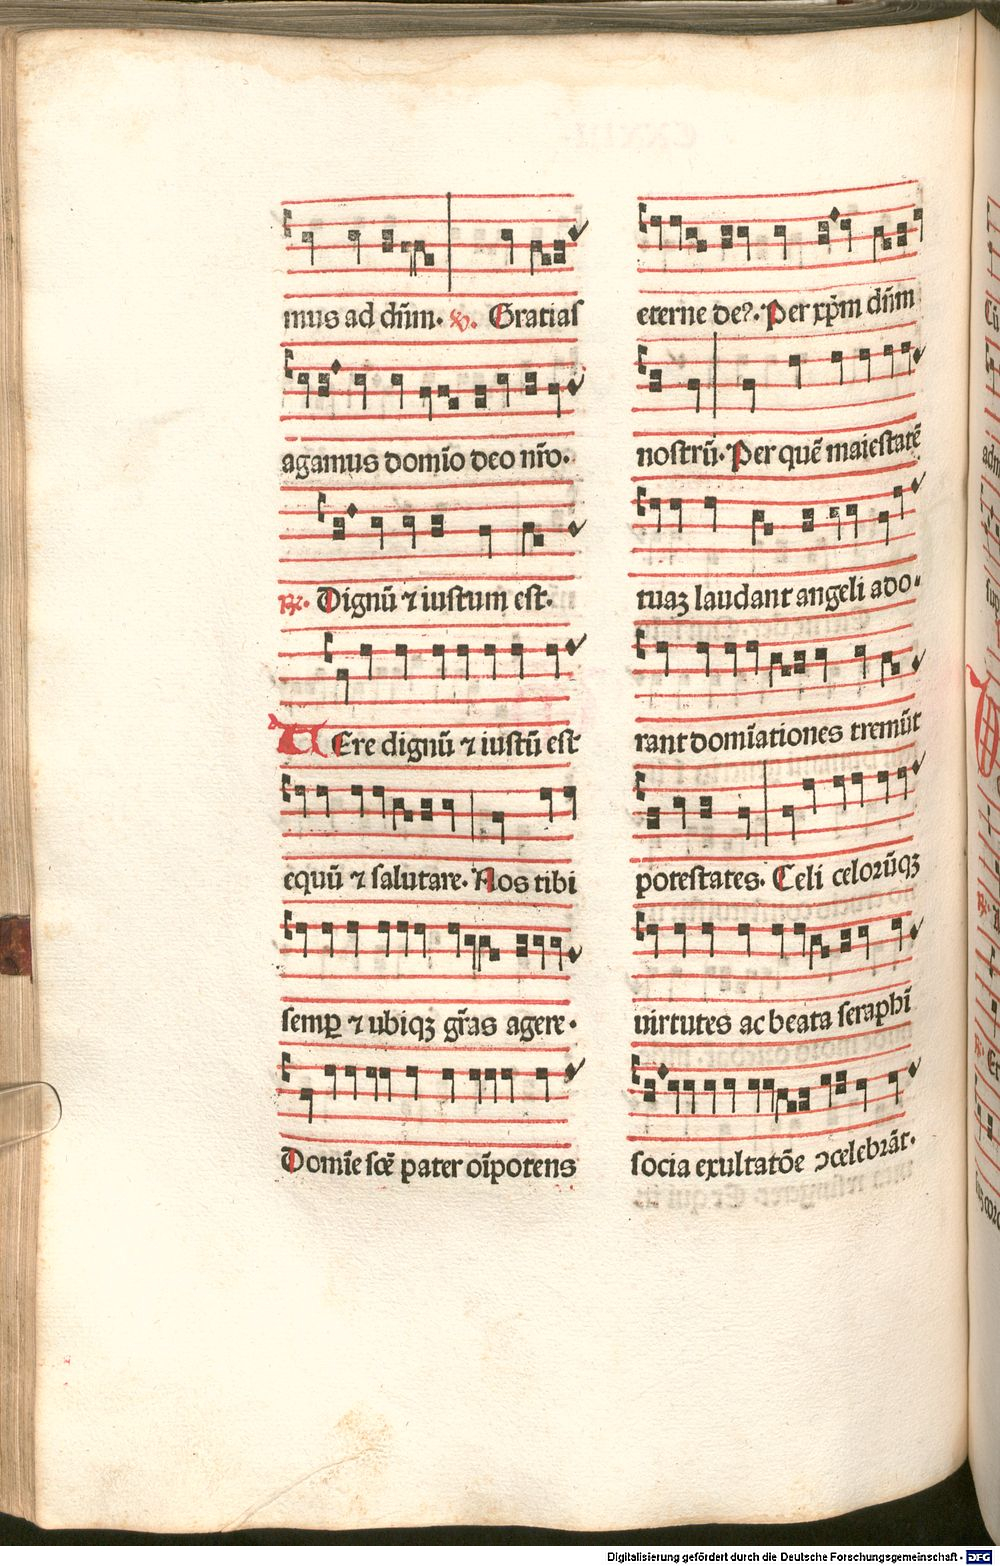 mus ad dn̄m. ℣. Gratias
agamus domīo deo nr̄o.
℟. Dignū ⁊ iustum est.
VEre dignū ⁊ iustū est
equū ⁊ salutare. Nos tibi
semꝑ ⁊ ubiqꝫ gr̄as agere.
Domīe sc̄e pater oīpotens
eterne deꝰ. Per xp̄m dn̄m
nostrū. Per quē maiestatē
tuaꝫ laudant angeli ado-
rant domīationes tremūt
potestates. Celi celorūqꝫ
uirtutes ac beata seraphī
socia exultatōe ↄcelebrāt.
Digitalisierung gefördert durch die Deutsche Forschungsgemeinschaft - DFG